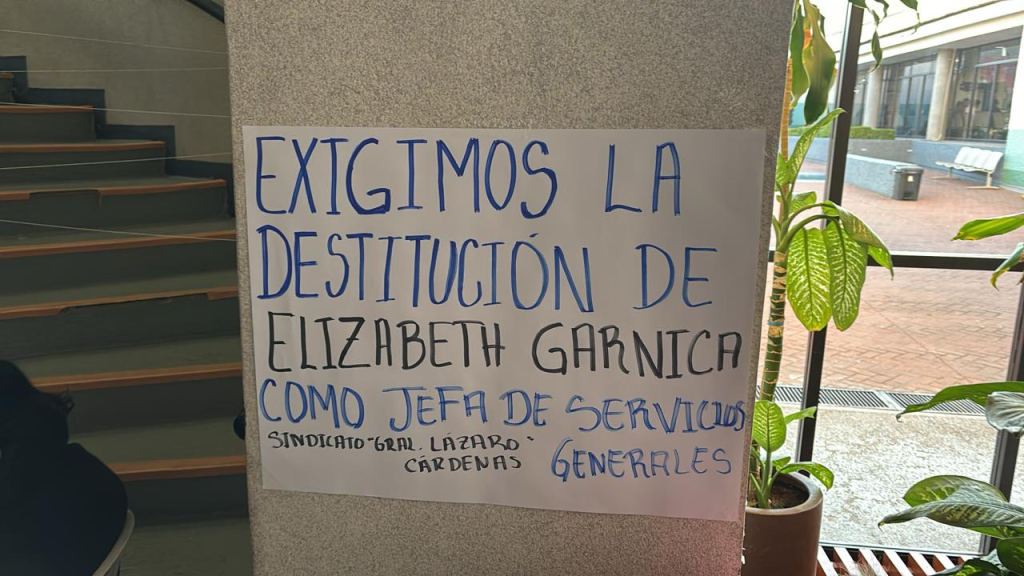 EXIGIMOS LA
DESTITUCIÓN DE
ELIZABETH GARNICA
COMO JEFA DE SERVICIOS
GENERALES
SINDICATO "GRAL. LÁZARO"
CÁRDENAS